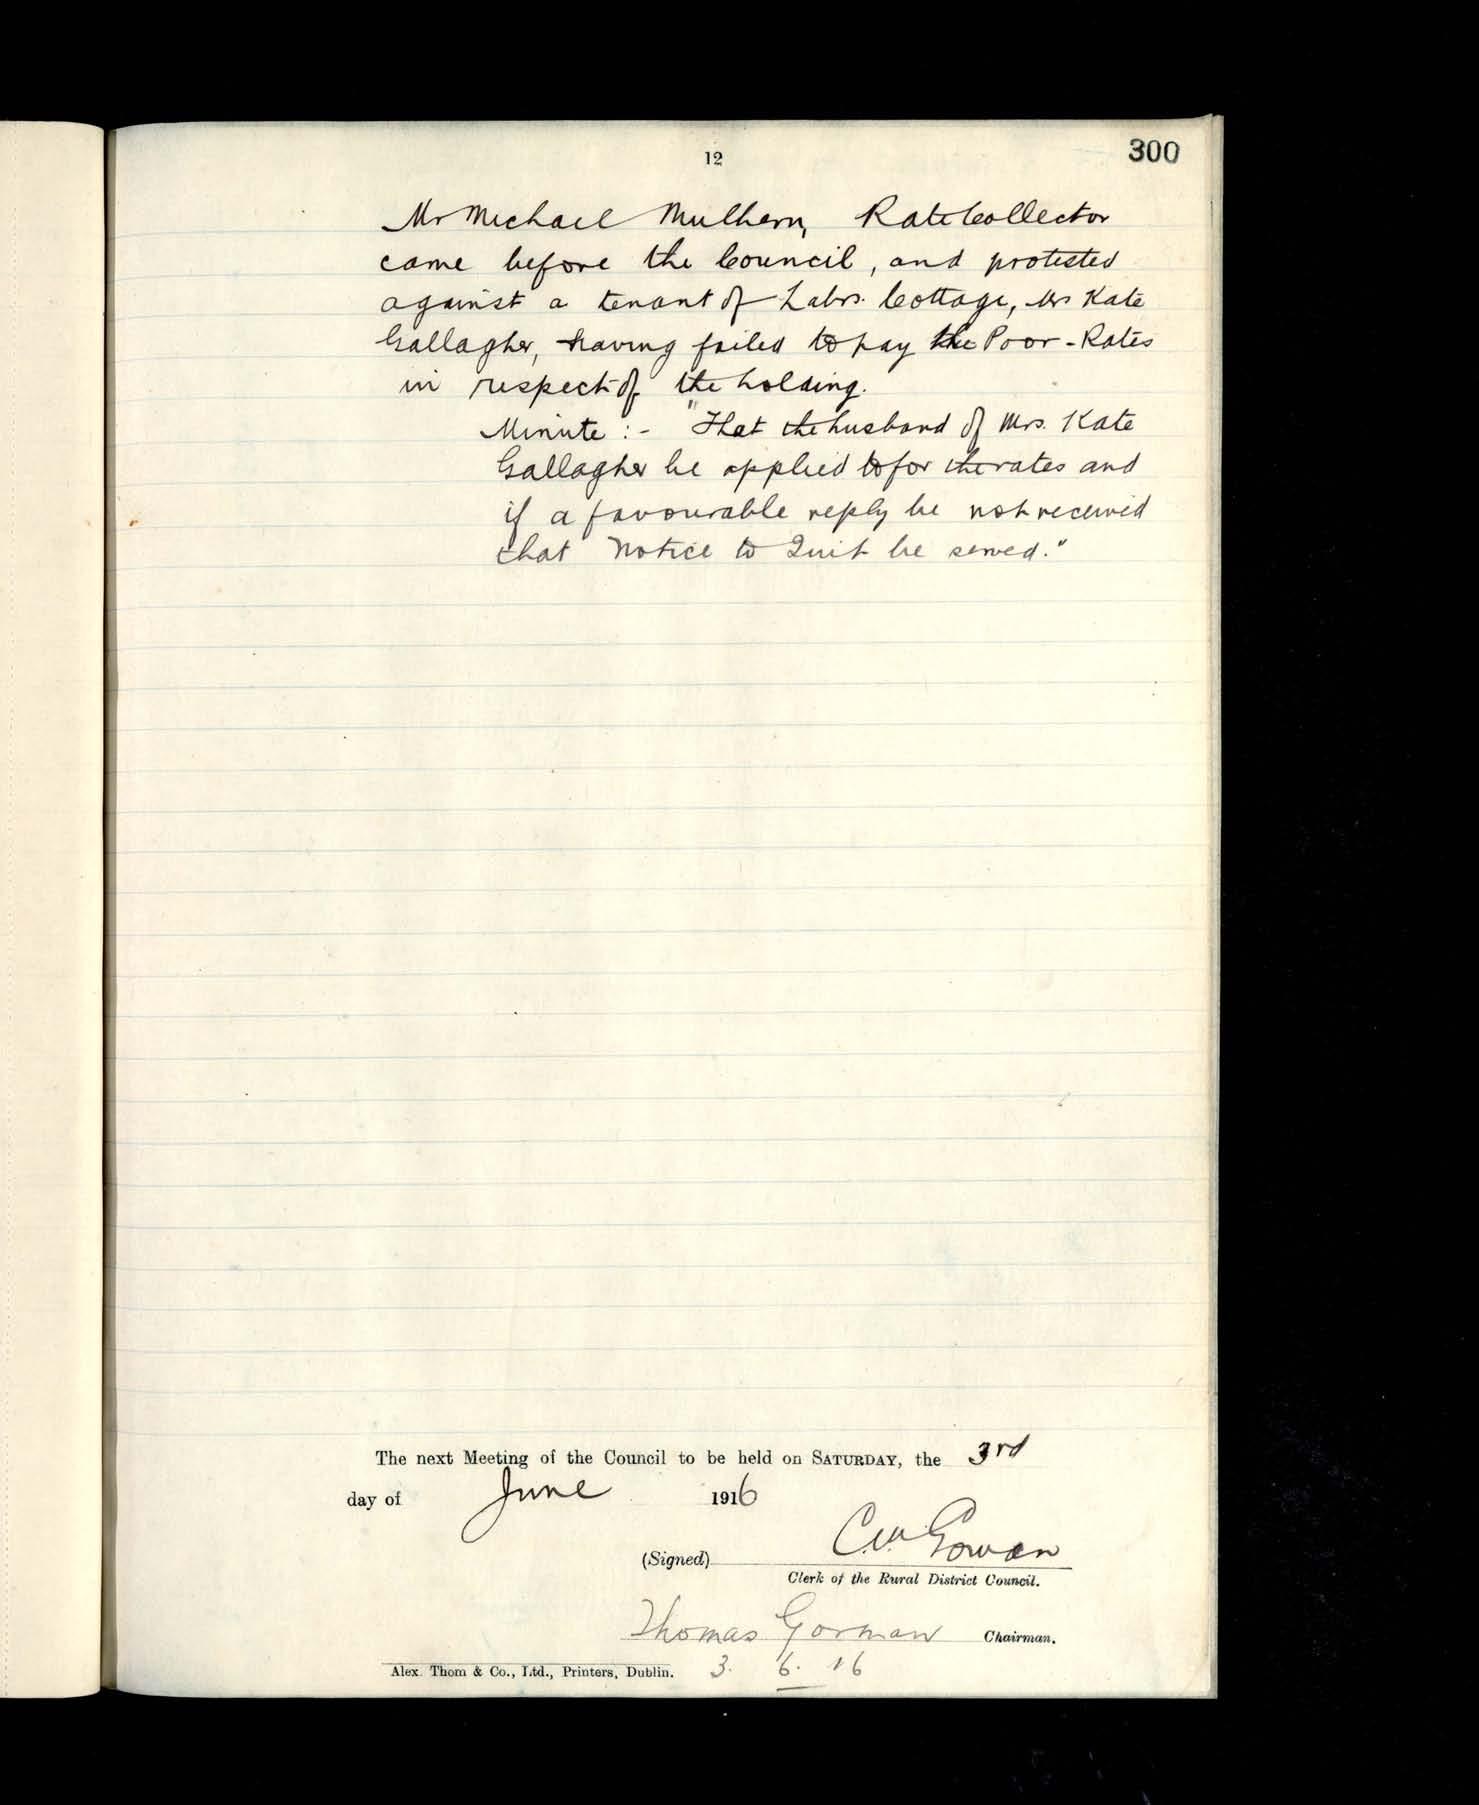 12
300
Mr Michael Mulhern, Rate Collector
came before the Council, and protested
against a tenant of Labrs. Cottage, Mrs Kate
Gallagher, having failed to pay the Poor-Rates
in respect of the holding.
Minute :- "That the husband of Mrs. Kate
Gallagher be applied to for the rates and
if a favourable reply be not received
that Notice to Quit be served."
The next Meeting of the Council to be held on SATURDAY, the 3rd
day of June 1916
(Signed) CW Gowan
Clerk of the Rural District Council.
Thomas Gorman Chairman.
Alex. Thom & Co., Ltd., Printers, Dublin. 3. 6. 16